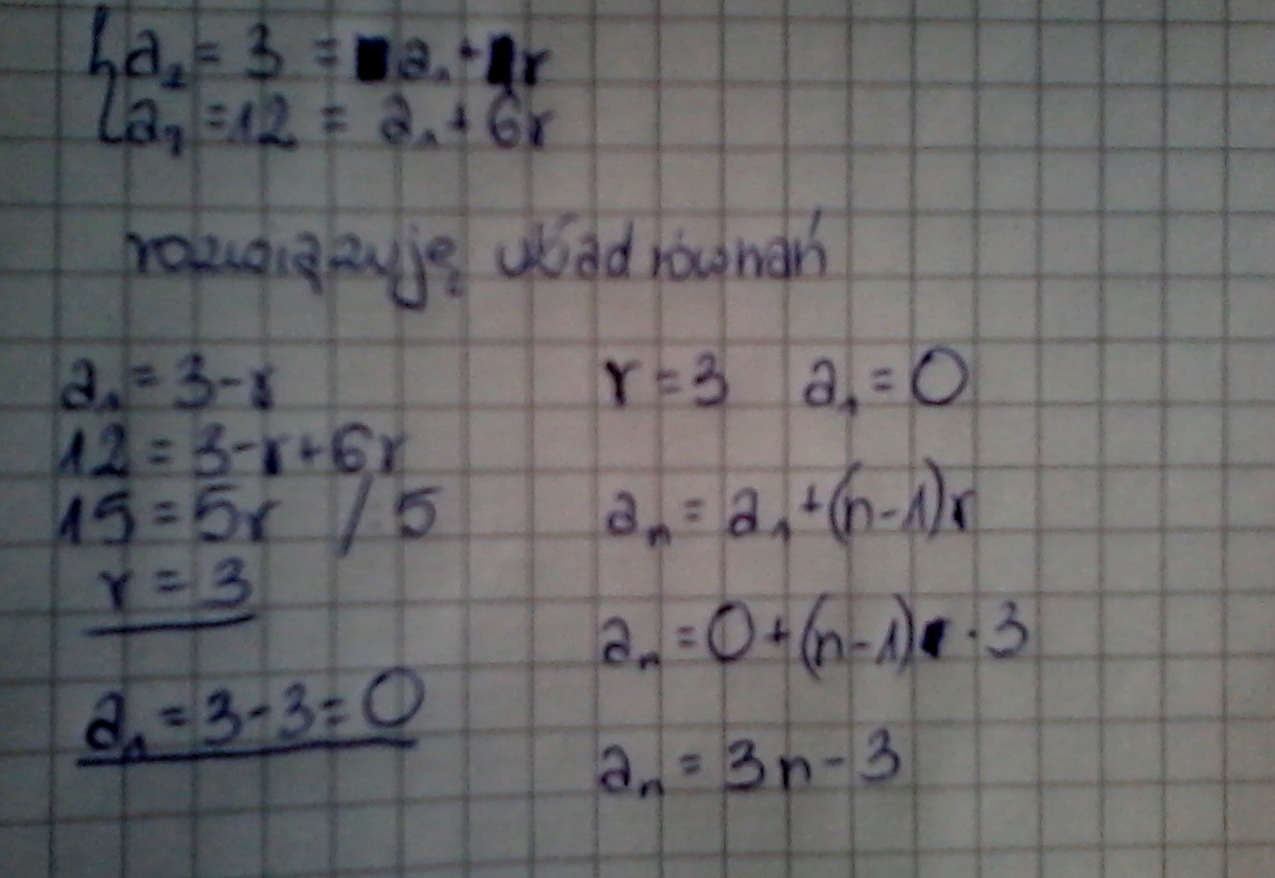 a₂ = 3 = a₁ + r
a₇ = 12 = a₁ + 6r
rozwiązuję układ równań
a₁ = 3 - r
12 = 3 - r + 6r
15 = 5r / 5
r = 3
a₁ = 3 - 3 = 0
r = 3 a₁ = 0
aₙ = a₁ + (n-1)r
aₙ = 0 + (n-1) · 3
aₙ = 3n - 3